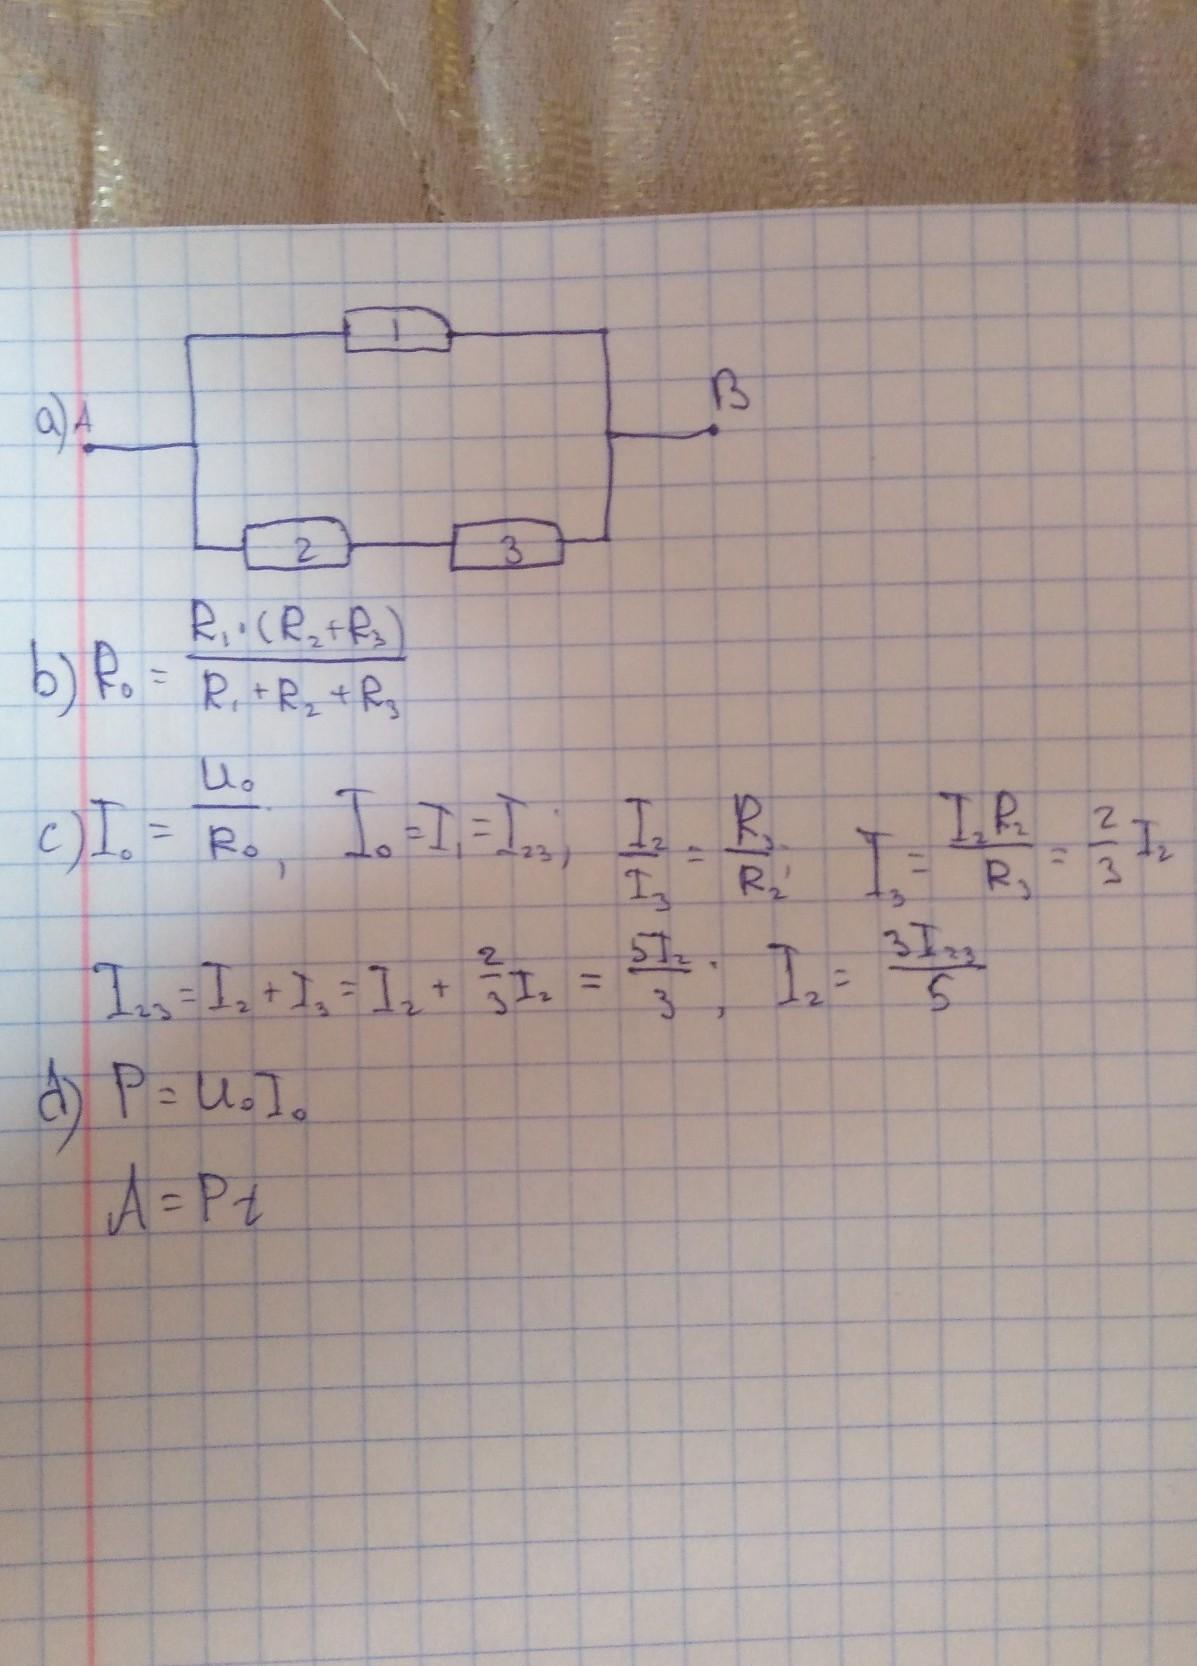 1
a) A
B
2 3
b) R₀ = R₁·(R₂+R₃) / R₁+R₂+R₃
c) I₀ = U₀/R₀, I₀ = I₁ = I₂₃; I₂/I₃ = R₃/R₂; I₃ = I₂R₂/R₃ = 2/3 I₂
I₂₃ = I₂ + I₃ = I₂ + 2/3 I₂ = 5I₂/3; I₂ = 3I₂₃/5
d) P = U₀I₀
A = Pt